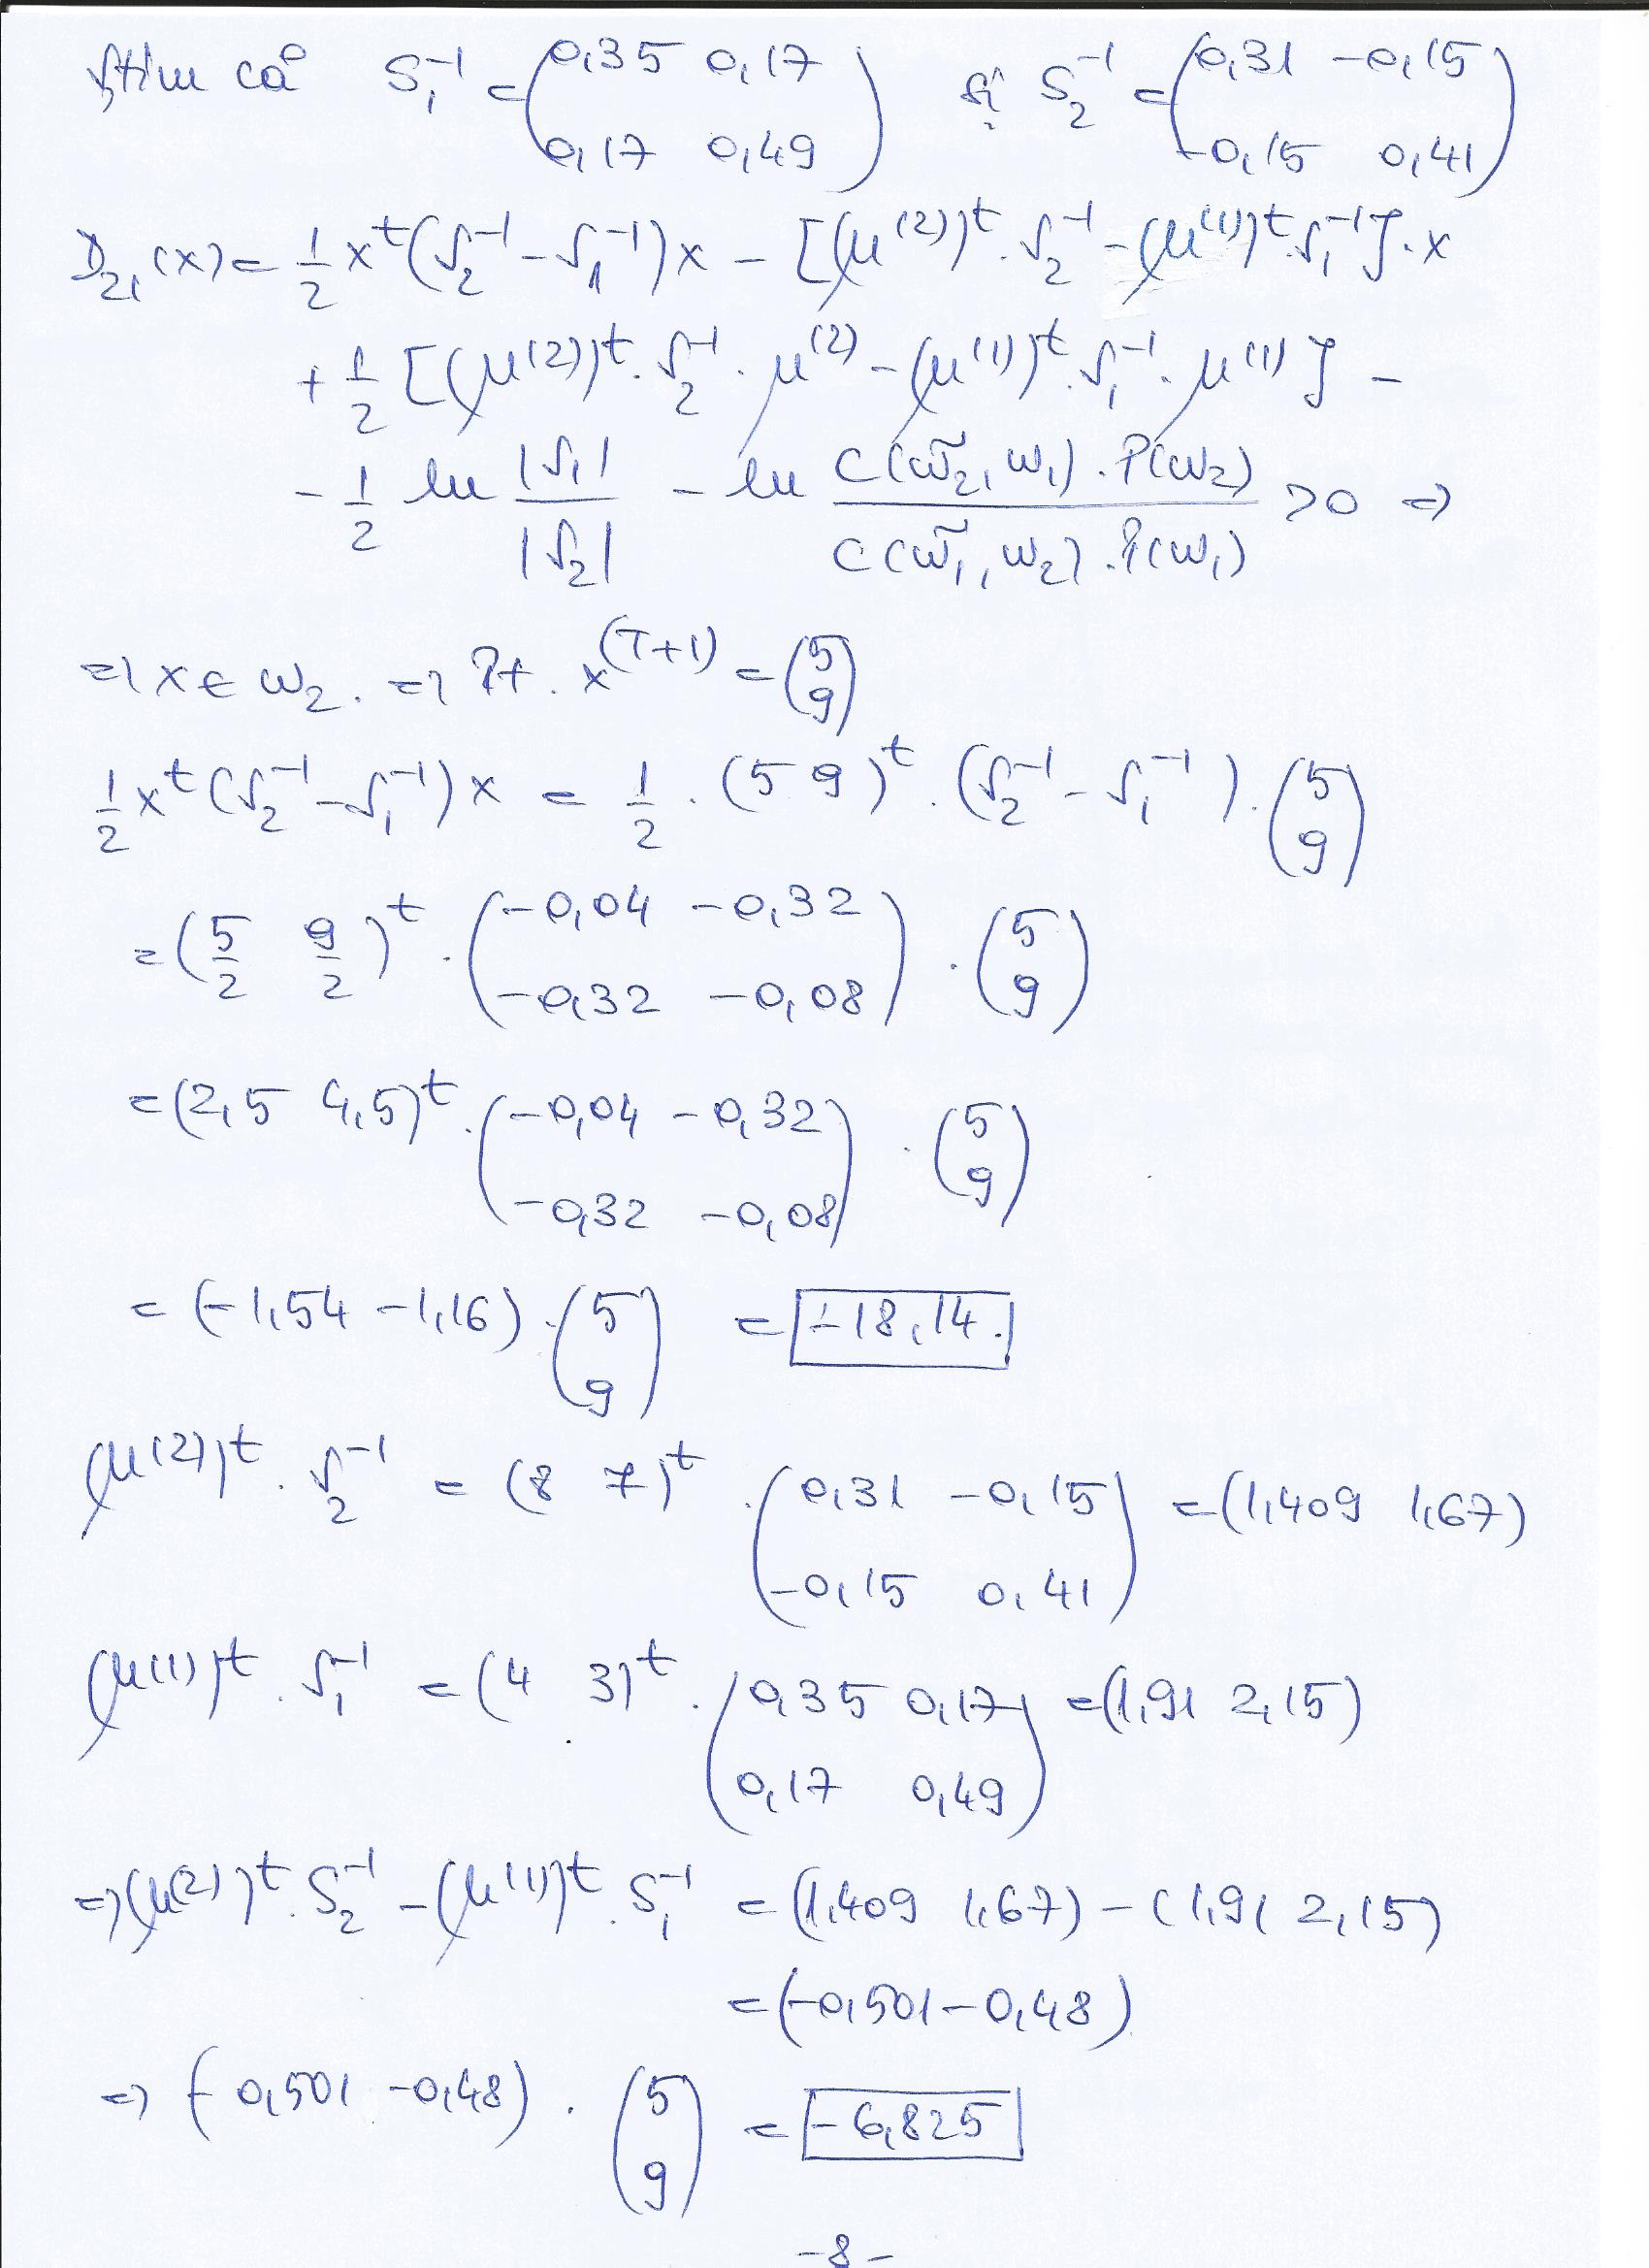 știm că S₁⁻¹ = (0,35 0,17 / 0,17 0,49) și S₂⁻¹ = (0,31 -0,15 / -0,15 0,41)
D₂₁(x) = 1/2 xᵗ(S₂⁻¹ - S₁⁻¹)x - [(μ⁽²⁾)ᵗ · S₂⁻¹ - (μ⁽¹⁾)ᵗ · S₁⁻¹] · x
+ 1/2 [(μ⁽²⁾)ᵗ · S₂⁻¹ · μ⁽²⁾ - (μ⁽¹⁾)ᵗ · S₁⁻¹ · μ⁽¹⁾] -
- 1/2 ln |S₁|/|S₂| - ln C(ω̃₂, ω₁) · P(ω₂) / C(ω̃₁, ω₂) · P(ω₁) > 0 ⇒
⇒ x ∈ ω₂. ⇒ Pt. x⁽ᵀ⁺¹⁾ = (5 / 9)
1/2 xᵗ(S₂⁻¹ - S₁⁻¹)x = 1/2 · (5 9)ᵗ · (S₂⁻¹ - S₁⁻¹) · (5 / 9)
= (5/2 9/2)ᵗ · (-0,04 -0,32 / -0,32 -0,08) · (5 / 9)
= (2,5 4,5)ᵗ · (-0,04 -0,32 / -0,32 -0,08) · (5 / 9)
= (-1,54 -1,16) · (5 / 9) = -18,14.
(μ⁽²⁾)ᵗ · S₂⁻¹ = (8 7)ᵗ · (0,31 -0,15 / -0,15 0,41) = (1,409 1,67)
(μ⁽¹⁾)ᵗ · S₁⁻¹ = (4 3)ᵗ · (0,35 0,17 / 0,17 0,49) = (1,91 2,15)
⇒ (μ⁽²⁾)ᵗ · S₂⁻¹ - (μ⁽¹⁾)ᵗ · S₁⁻¹ = (1,409 1,67) - (1,91 2,15)
= (-0,501 -0,48)
⇒ (-0,501 -0,48) · (5 / 9) = -6,825
-8-